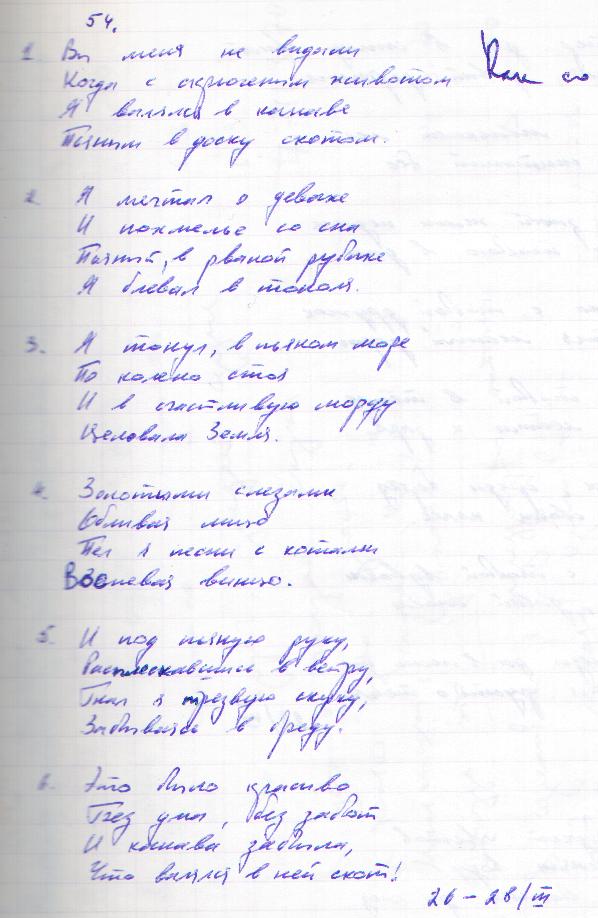 54.
1. Вы меня не видали
Когда с скрюченым животом
Я валялся в канаве
Пьяным в доску скотом.
2. Я мечтал о девахе
И похмелье со сна
Пьяный, в рваной рубахе
Я блевал в тополя.
3. Я тонул, в пьяном море
По колено стоя
И в счастливую морду
Целовала Земля.
4. Золотыми слезами
Обливая лицо
Пел я песни с котами
Воспевая винцо.
5. И под пьяную руку,
Расплескавшись в ветру,
Гнал я трезвую скуку,
Забываясь в бреду.
6. Это было красиво
Без ума, без забот
И канава забыла,
Что валялся в ней скот!
26 – 28/III